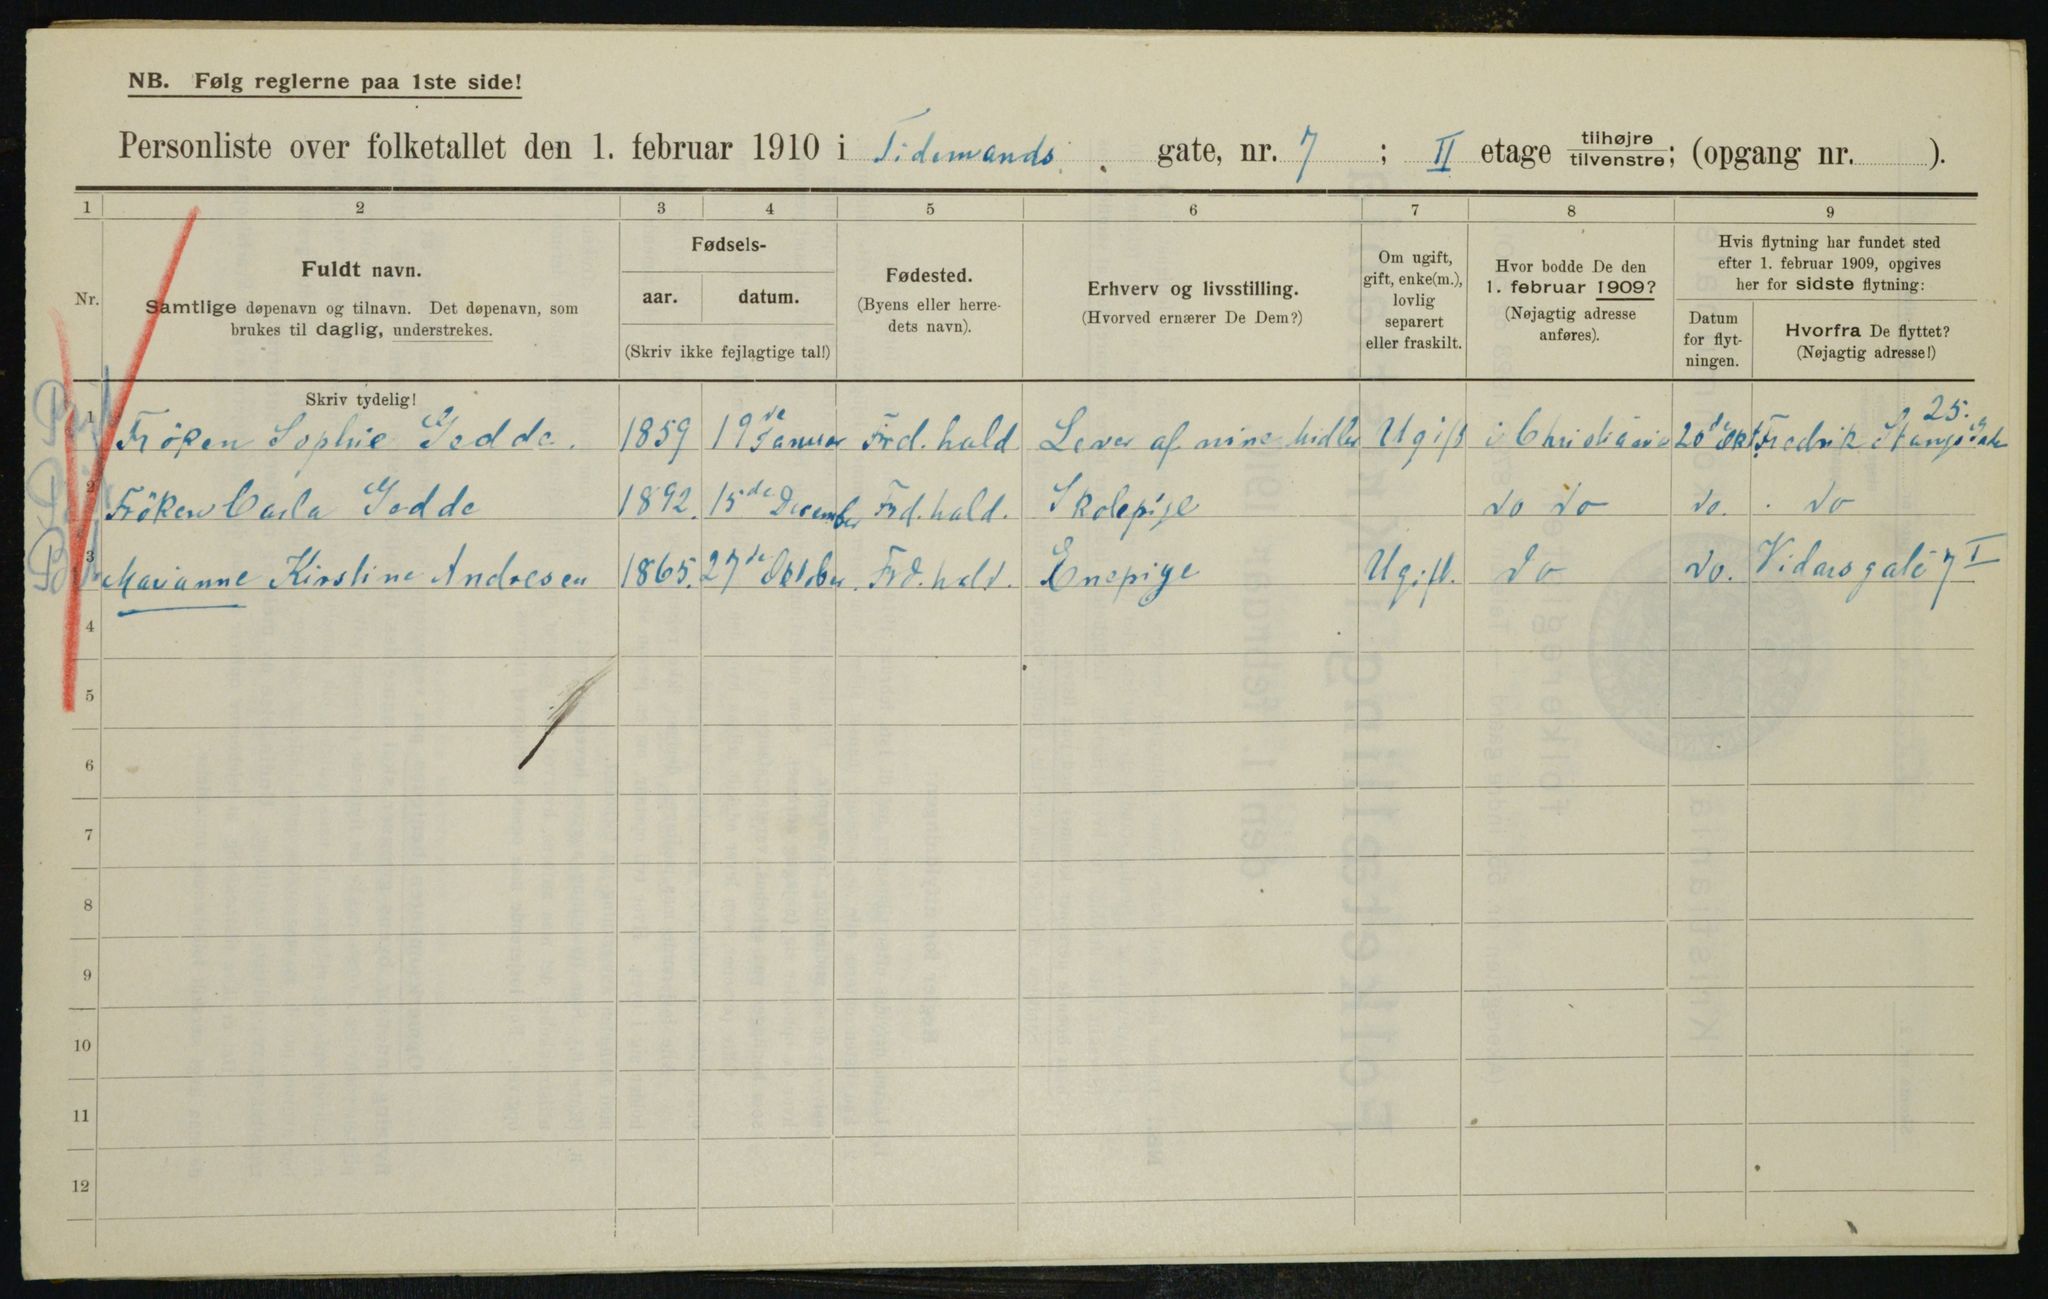 NB. Følg reglerne paa 1ste side!
Personliste over folketallet den 1. februar 1910 i Tidemands gate, nr. 7 ; II etage tilhøjre tilvenstre; (opgang nr. ).
1 2 3 4 5 6 7 8 9
Nr.
Fuldt navn.
Samtlige døpenavn og tilnavn. Det døpenavn, som
brukes til daglig, understrekes.
Fødsels-
aar. datum.
(Skriv ikke fejlagtige tal!)
Fødested.
(Byens eller herre-
dets navn).
Erhverv og livsstilling.
(Hvorved ernærer De Dem?)
Om ugift,
gift, enke(m.),
lovlig
separert
eller fraskilt.
Hvor bodde De den
1. februar 1909?
(Nøjagtig adresse
anføres).
Hvis flytning har fundet sted
efter 1. februar 1909, opgives
her for sidste flytning:
Datum
for flyt-
ningen.
Hvorfra De flyttet?
(Nøjagtig adresse!)
Skriv tydelig!
1 Fröken Sophie Gedde. 1859 19de Januar Frd.hald Lever af mine Midler Ugift i Christiania 20de Okt Fredrik Stangs Gade 25.
2 Fröken Carla Gedde 1892. 15de December Frd.hald. Skolepige do do do. do
3 Marianne Kirstine Andresen 1865. 27de Oktober. Frd.hald. Enepige Ugift. do do. Vidarsgate 7 I
4
5
6
7
8
9
10
11
12